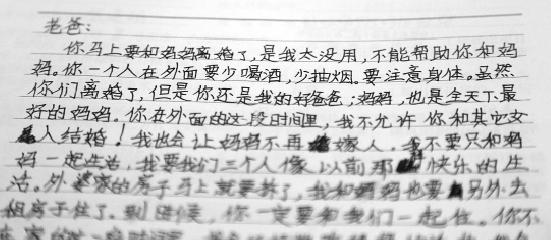 老爸：
你马上要和妈妈离婚了，是我太没用，不能帮助你和妈
妈。你一个人在外面要少喝酒，少抽烟。要注意身体。虽然
你们离婚了，但是你还是我的好爸爸；妈妈，也是全天下最
好的妈妈。你在外面的这段时间里，我不允许你和其它女
人结婚！我也会让妈妈不再嫁人。我不要只和妈
妈一起生活，我要我们三个人像以前那样快乐的生
活。外婆家的房子马上就要拆了，我和妈妈也要另外去
租房子住了。到时候，你一定要和我们一起住。你不